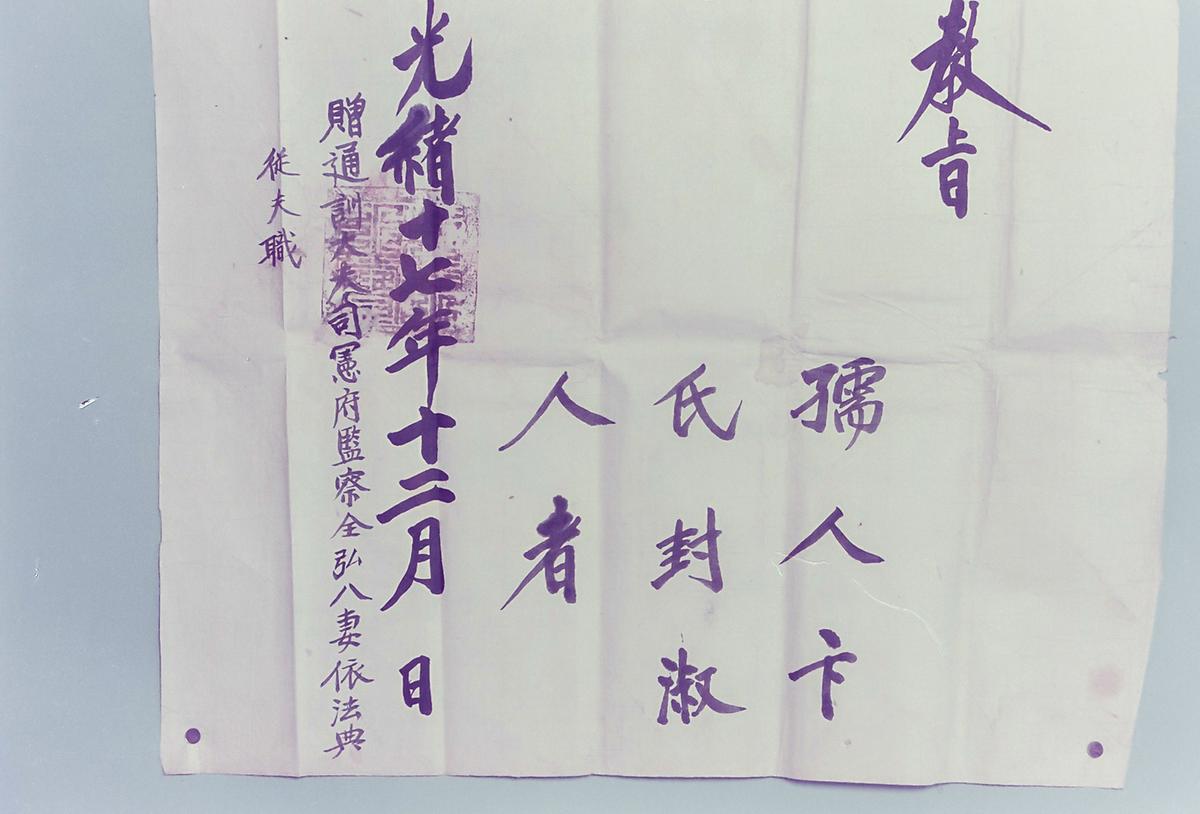 敎旨
孺人卞
氏封淑
人者
光緖十七年十二月 日
贈通訓大夫司憲府監察全弘八妻依法典
從夫職